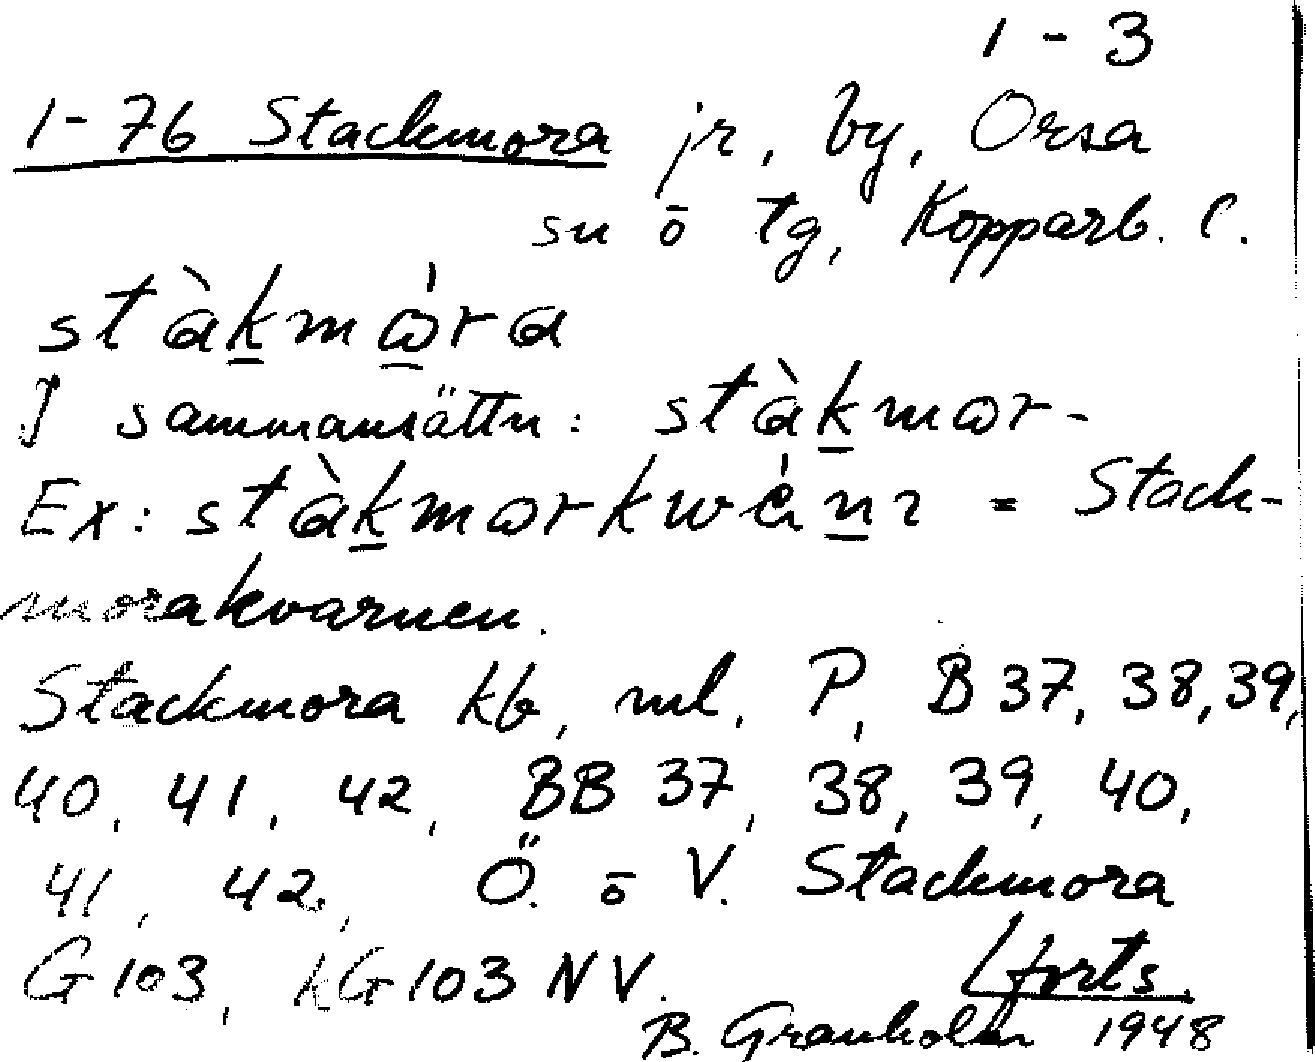 1 - 3
1-76 Stackmora jr, by, Orsa
su ō tg, Kopparb. l.
stàkmȯ́ra
I sammansättn: stàkmɷr-
Ex: stàkmɷrkwèṇɩ = Stack-
morakvarnen.
Stackmora kb, ml, P, B 37, 38, 39,
40, 41, 42, BB 37, 38, 39, 40,
41, 42, Ö. ō V. Stackmora
G 103, kG 103 NV. forts.
B. Granholm 1948